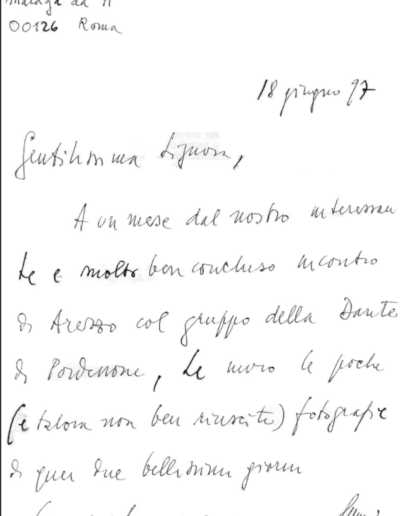 00126 Roma
18 giugno 97
Gentilissima Signora,
A un mese dal nostro interessan
te e molto ben concluso incontro
di Arezzo col gruppo della Dante
di Pordenone, Le invio le poche
(e talora non ben riuscite) fotografie
di quei due bellissimi giorni